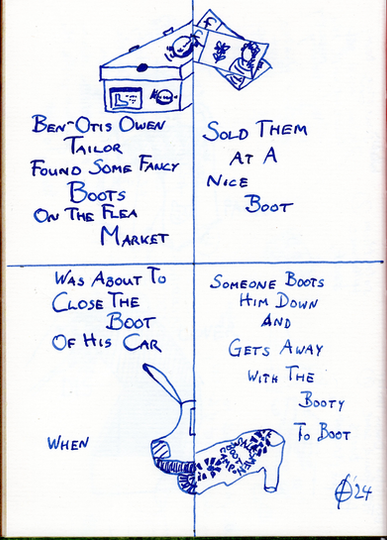 BEN~OTIS OWEN
TAILOR
FOUND SOME FANCY
BOOTS
ON THE FLEA
MARKET
SOLD THEM
AT A
NICE
BOOT
WAS ABOUT TO
CLOSE THE
BOOT
OF HIS CAR
WHEN
SOMEONE BOOTS
HIM DOWN
AND
GETS AWAY
WITH THE
BOOTY
TO BOOT
'24